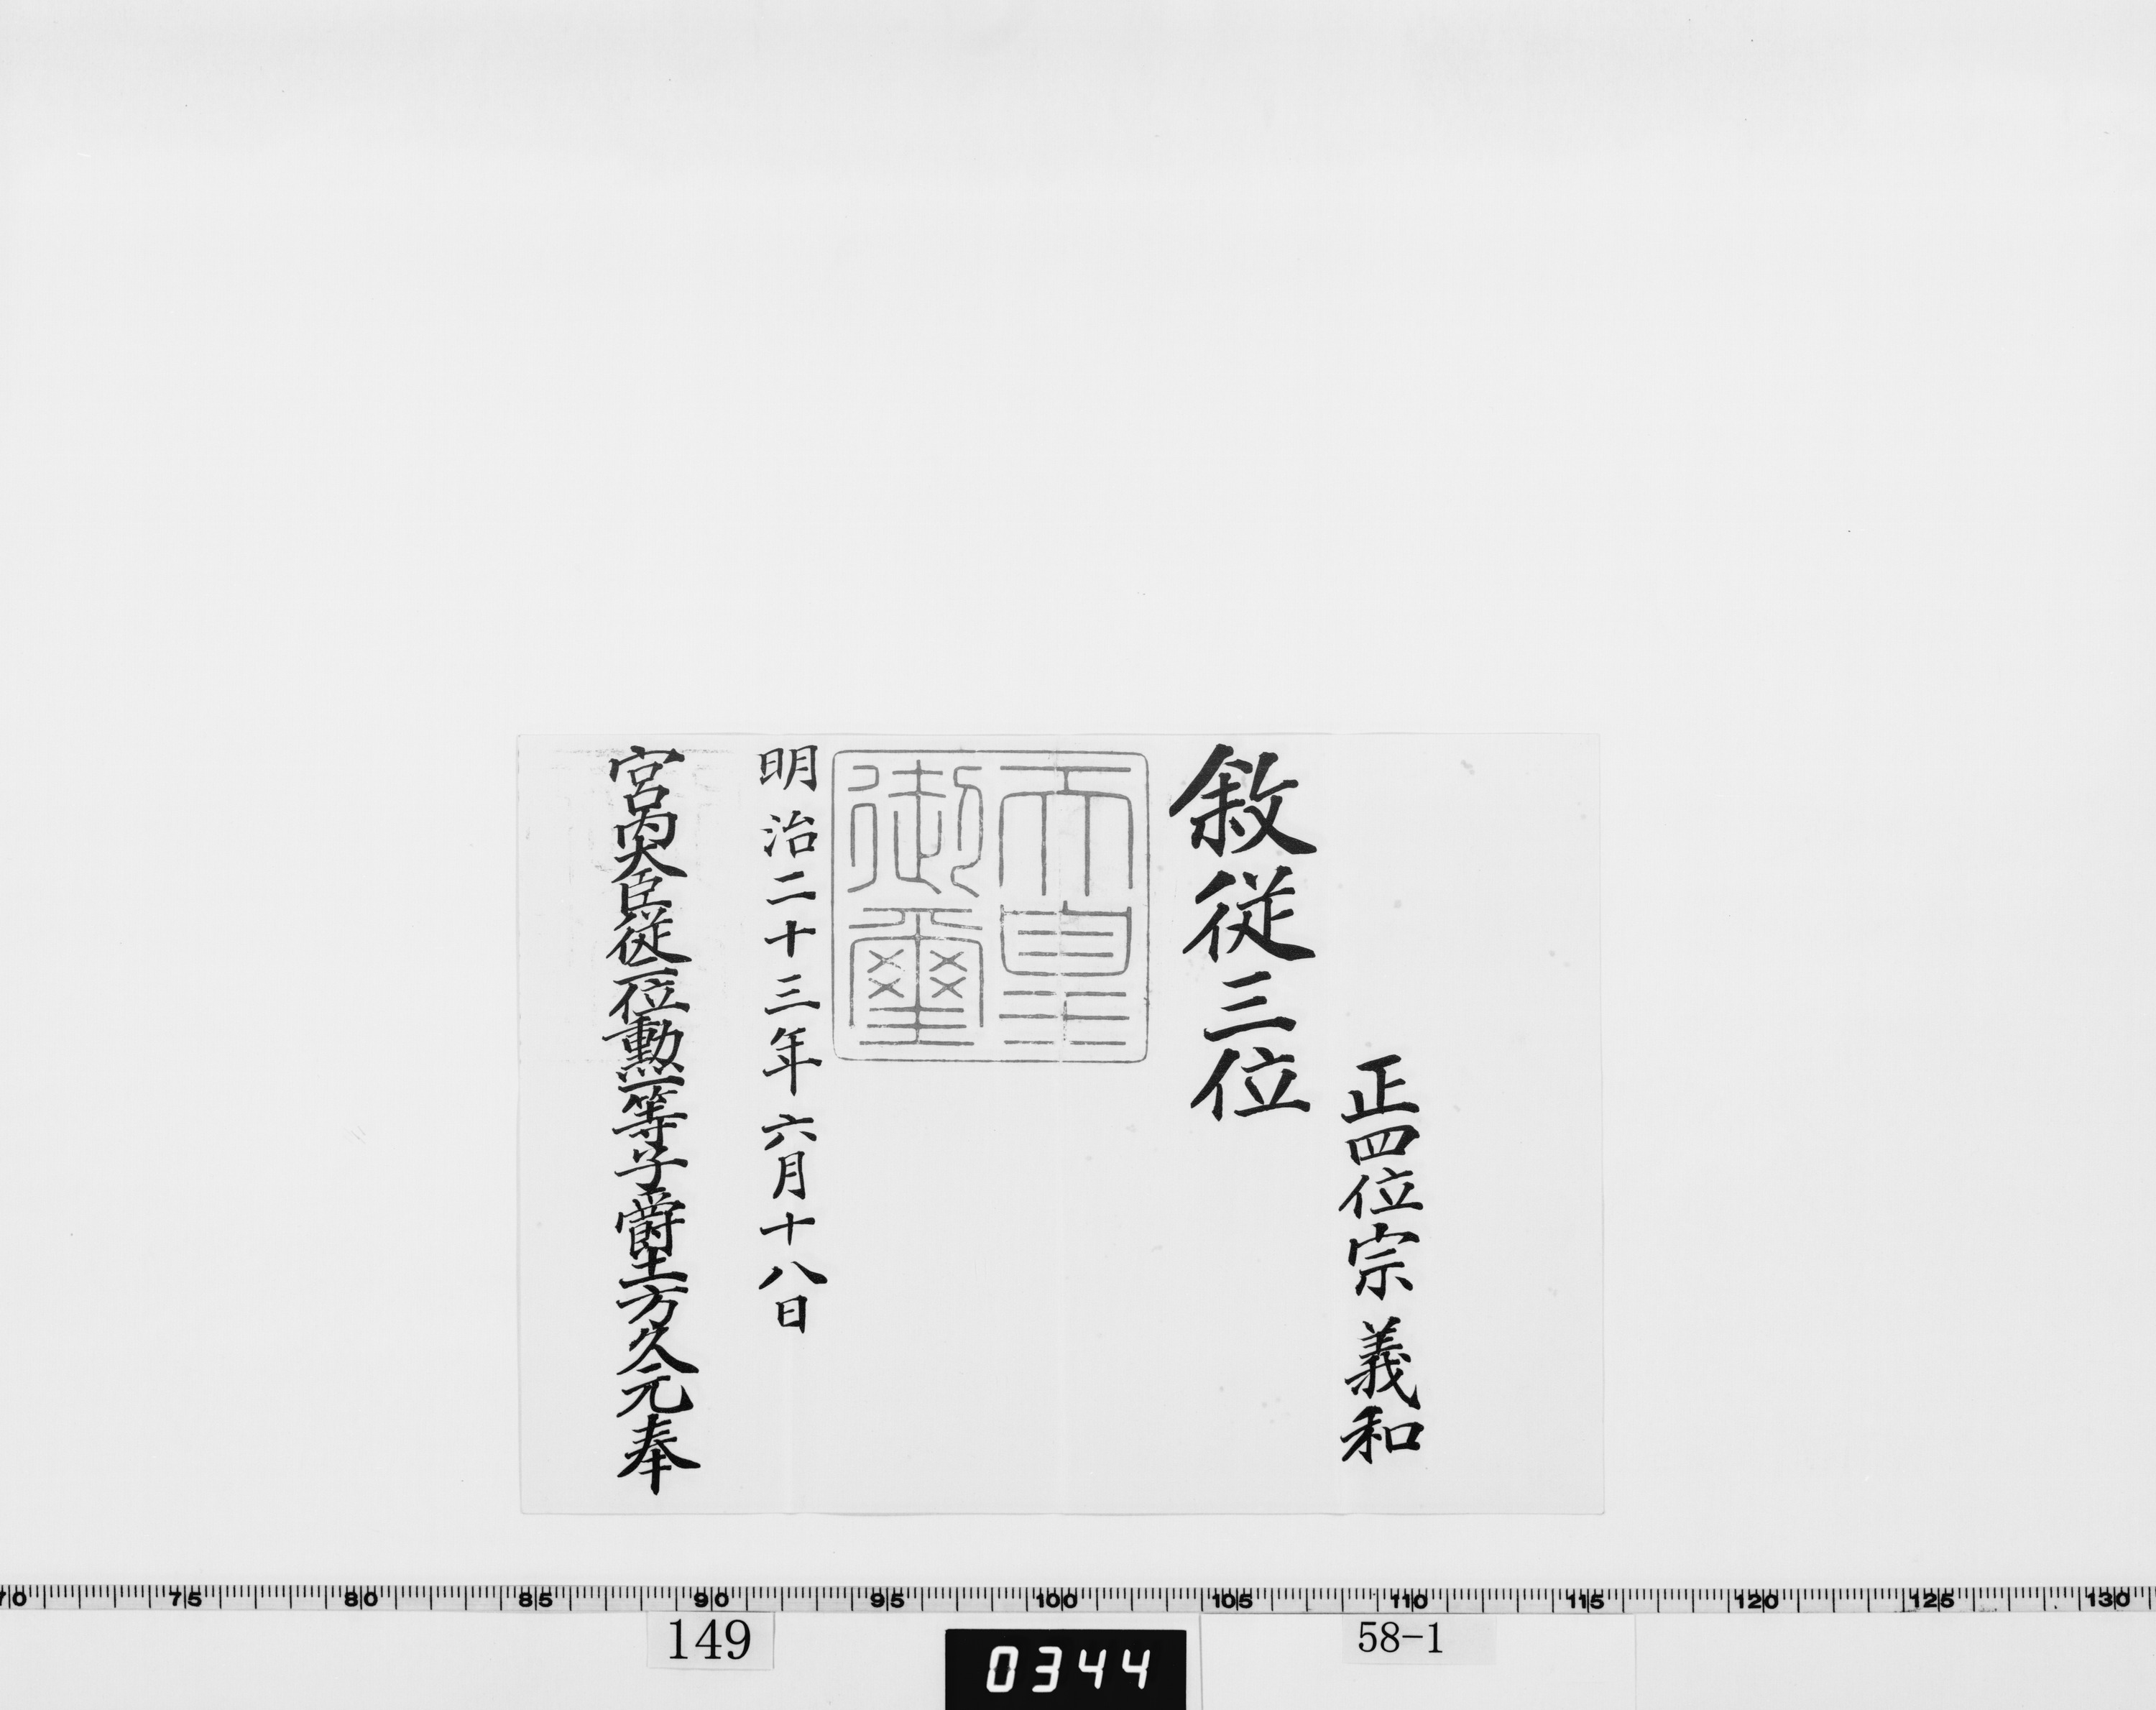 正四位宗義和
敘従三位
天皇
御璽
明治二十三年六月十八日
宮内大臣従二位勲一等子爵土方久元奉
70 75 80 85 90 95 100 105 110 115 120 125 130
149
0344
58-1